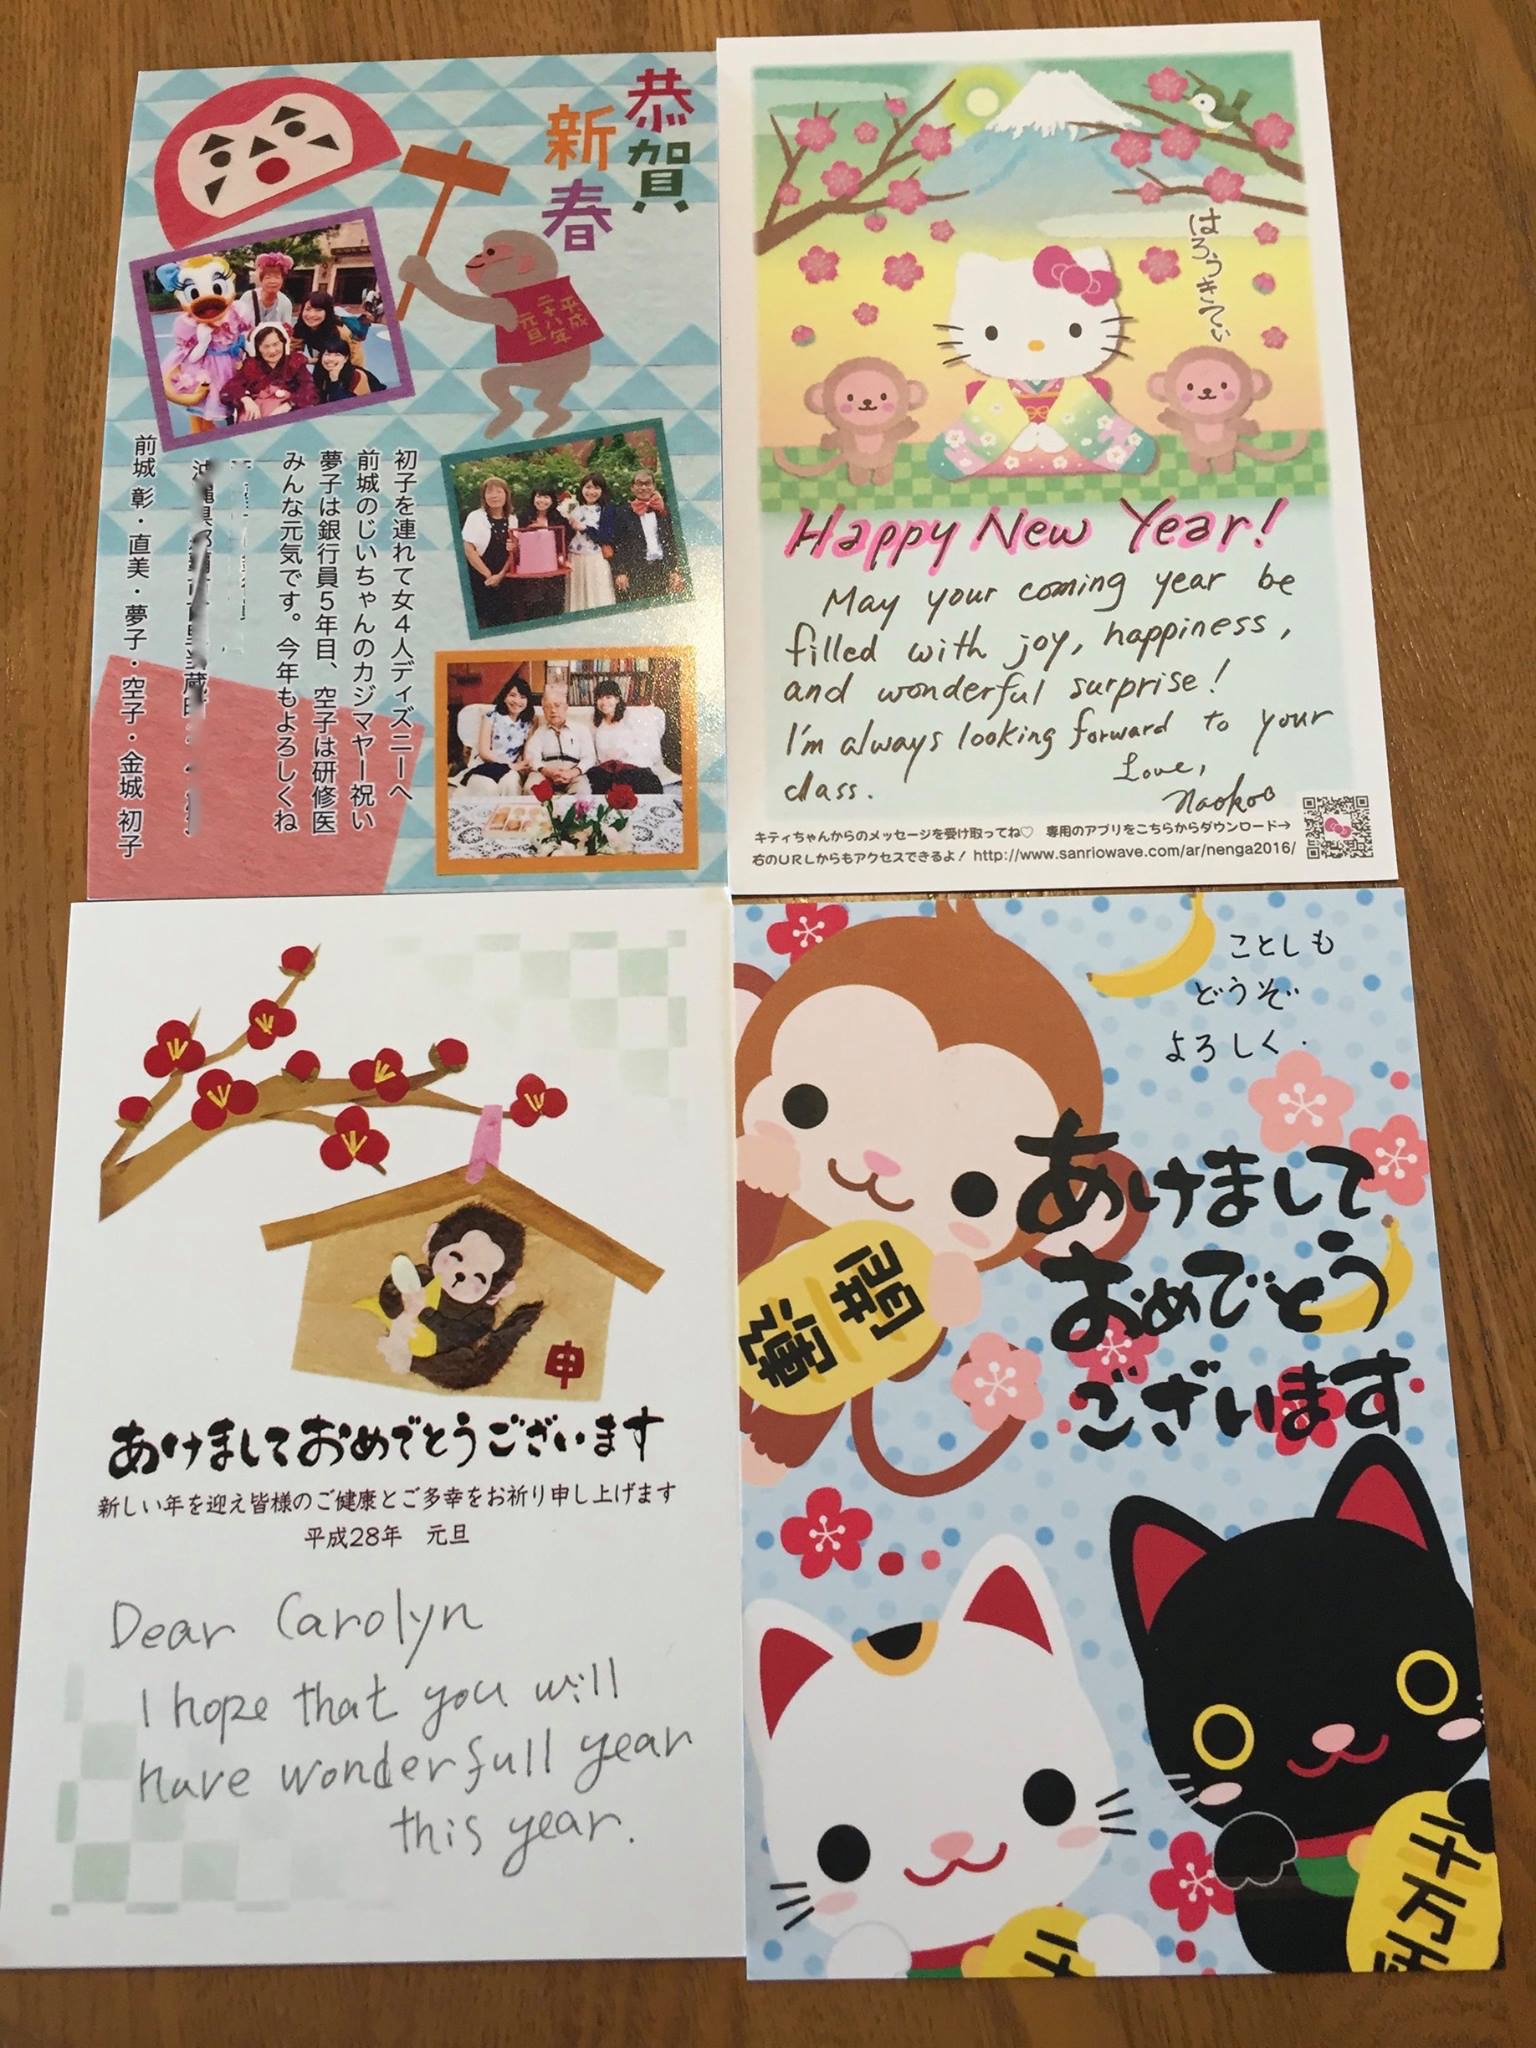 恭賀
新春
平成
二十八年
元旦
初子を連れて女4人ディズニーへ
前城のじいちゃんのカジマヤー祝い
夢子は銀行員5年目、空子は研修医
みんな元気です。今年もよろしくね
前城 彰・直美・夢子・空子・金城 初子
はろうきてぃ
Happy New Year!
May your coming year be
filled with joy, happiness,
and wonderful surprise!
I'm always looking forward to your
class.
Love,
Naoko
キティちゃんからのメッセージを受け取ってね♡ 専用のアプリをこちらからダウンロード→
右のURLからもアクセスできるよ! http://www.sanriowave.com/ar/nenga2016/
申
あけましておめでとうございます
新しい年を迎え皆様のご健康とご多幸をお祈り申し上げます
平成28年 元旦
Dear Carolyn
I hope that you will
have wonderfull year
this year.
ことしも
どうぞ
よろしく.
あけまして
おめでとう
ございます
開運
千
千万両